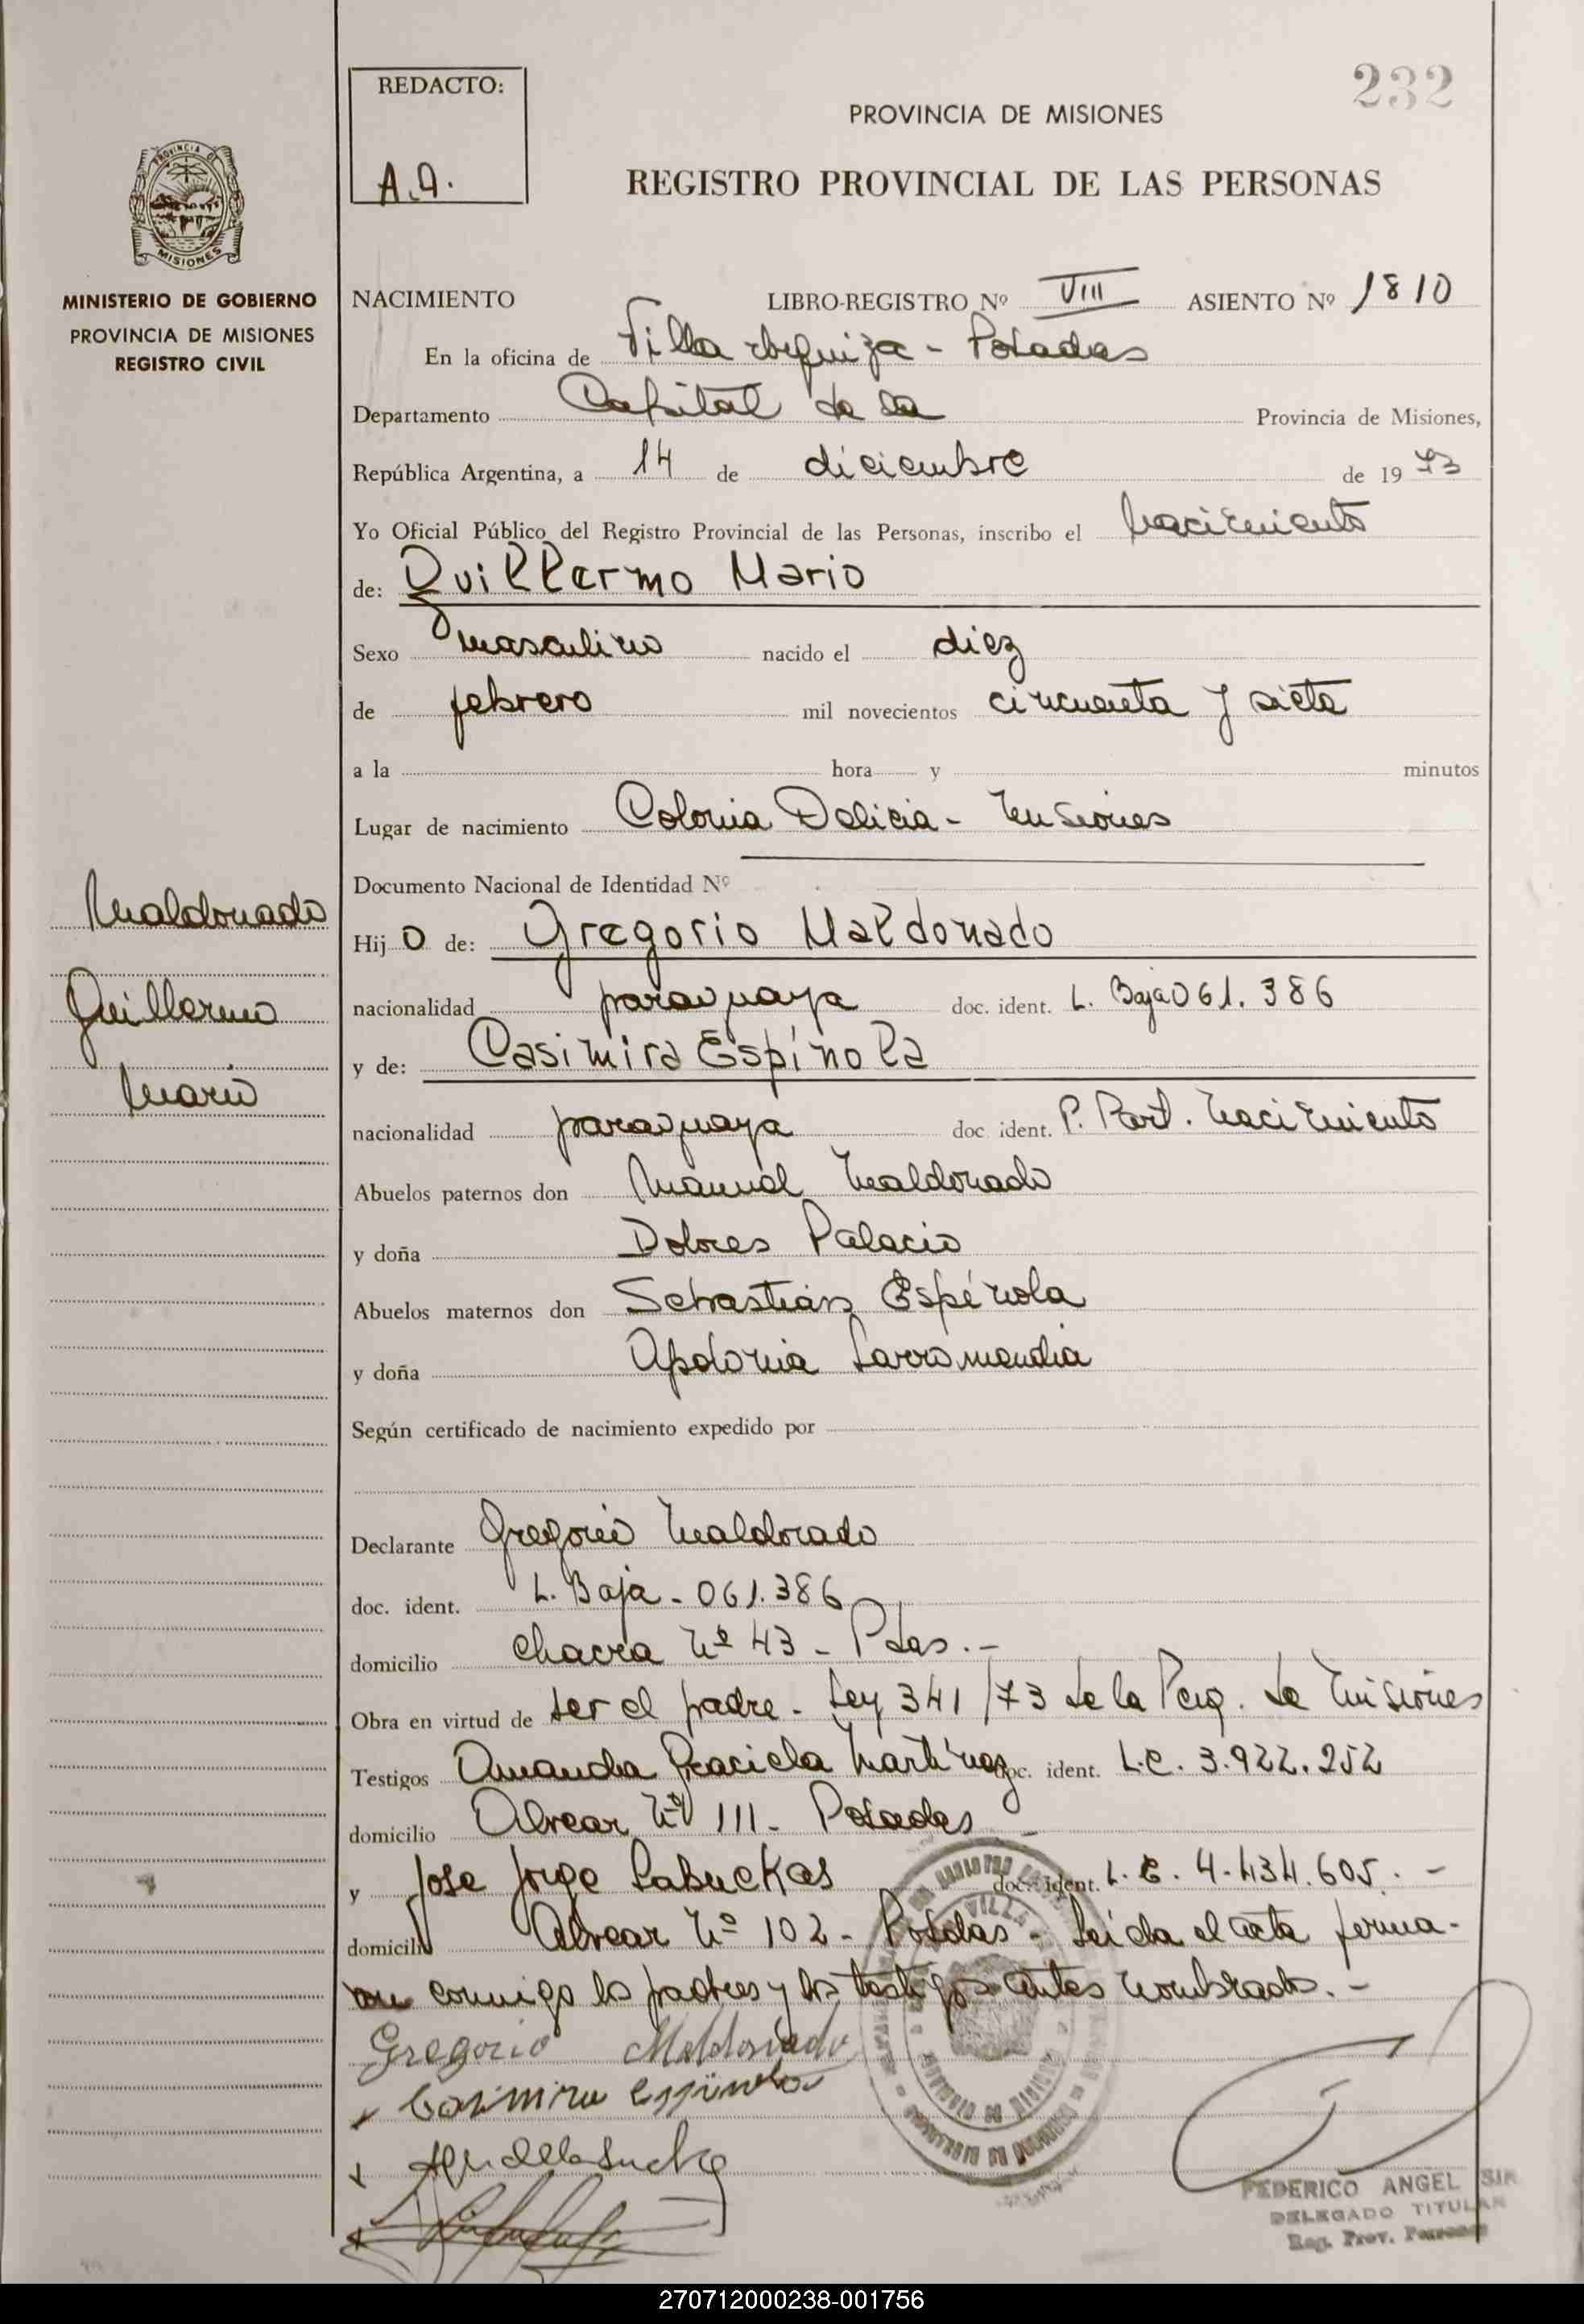 232
REDACTO:
A.A.
PROVINCIA DE MISIONES
REGISTRO PROVINCIAL DE LAS PERSONAS
PROVINCIA DE
MISIONES
MINISTERIO DE GOBIERNO
PROVINCIA DE MISIONES
REGISTRO CIVIL
NACIMIENTO LIBRO-REGISTRO Nº VIII ASIENTO Nº 1810
En la oficina de Villa Urquiza - Posadas
Departamento Capital de la Provincia de Misiones,
República Argentina, a 14 de diciembre de 1973
Yo Oficial Público del Registro Provincial de las Personas, inscribo el nacimiento
de: Guillermo Mario
Sexo masculino nacido el diez
de febrero mil novecientos cincuenta y siete
a la hora y minutos
Lugar de nacimiento Colonia Delicia - Misiones
Documento Nacional de Identidad Nº
Maldonado
Guillermo
Mario
Hijo de: Gregorio Maldonado
nacionalidad paraguaya doc. ident. L. Baja 061.386
y de: Casimira Espínola
nacionalidad paraguaya doc ident. P. Part. Nacimiento
Abuelos paternos don Manuel Maldonado
y doña Dolores Palacio
Abuelos maternos don Sebastián Espínola
y doña Apolonia Larramendia
Según certificado de nacimiento expedido por
Declarante Gregorio Maldonado
doc. ident. L. Baja - 061.386
domicilio Chacra Nº 43 - Pdas. -
Obra en virtud de ser el padre - Ley 341/73 de la Pcia. de Misiones
Testigos Amanda Graciela Martínez doc. ident. L.C. 3.922.252
domicilio Alvear Nº 111 - Posadas -
y José Jorge Labuckas doc. ident. L.E. 4.434.605. -
domicilio Alvear Nº 102 - Posadas - Leída el acta firma-
on conmigo los padres y los testigos antes nombrados. -
Gregorio Maldonado
Casimira Espinola
FEDERICO ANGEL SIR
DELEGADO TITULAR
Reg. Prov. Personas
270712000238-001756